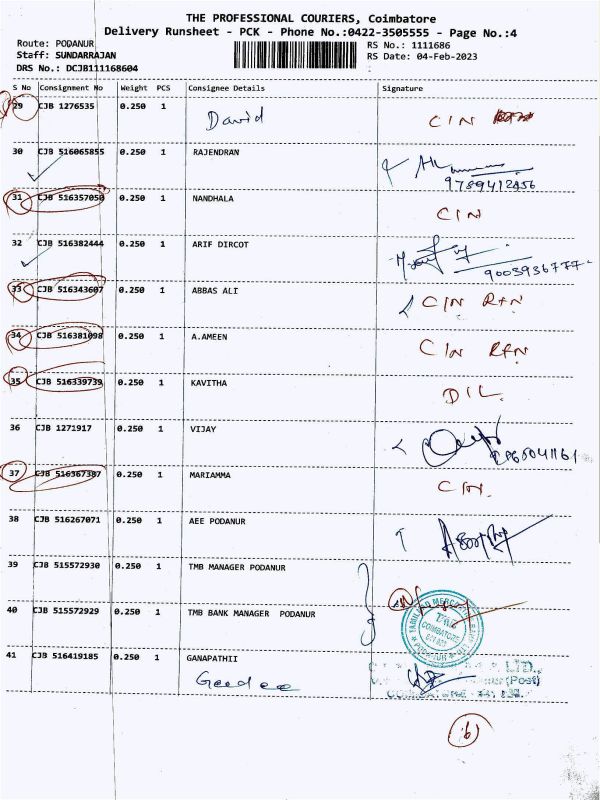 THE PROFESSIONAL COURIERS, Coimbatore
Delivery Runsheet - PCK - Phone No.:0422-3505555 - Page No.:4
Route: PODANUR RS No.: 1111686
Staff: SUNDARRAJAN RS Date: 04-Feb-2023
DRS No.: DCJB111168604
S No Consignment No Weight PCS Consignee Details Signature
29 CJB 1276535 0.250 1 David CIN
30 CJB 516065855 0.250 1 RAJENDRAN
9789412456
31 CJB 516357050 0.250 1 NANDHALA CIN
32 CJB 516382444 0.250 1 ARIF DIRCOT
9003936777
33 CJB 516343607 0.250 1 ABBAS ALI CIN RFN
34 CJB 516381098 0.250 1 A.AMEEN CIN RFN
35 CJB 516339739 0.250 1 KAVITHA DIL
36 CJB 1271917 0.250 1 VIJAY
37 CJB 516367387 0.250 1 MARIAMMA CIN.
38 CJB 516267071 0.250 1 AEE PODANUR
39 CJB 515572930 0.250 1 TMB MANAGER PODANUR
40 CJB 515572929 0.250 1 TMB BANK MANAGER PODANUR
TAMILNAD MERCANTILE
COIMBATORE
41 CJB 516419185 0.250 1 GANAPATHII
LTD.,
(Post)